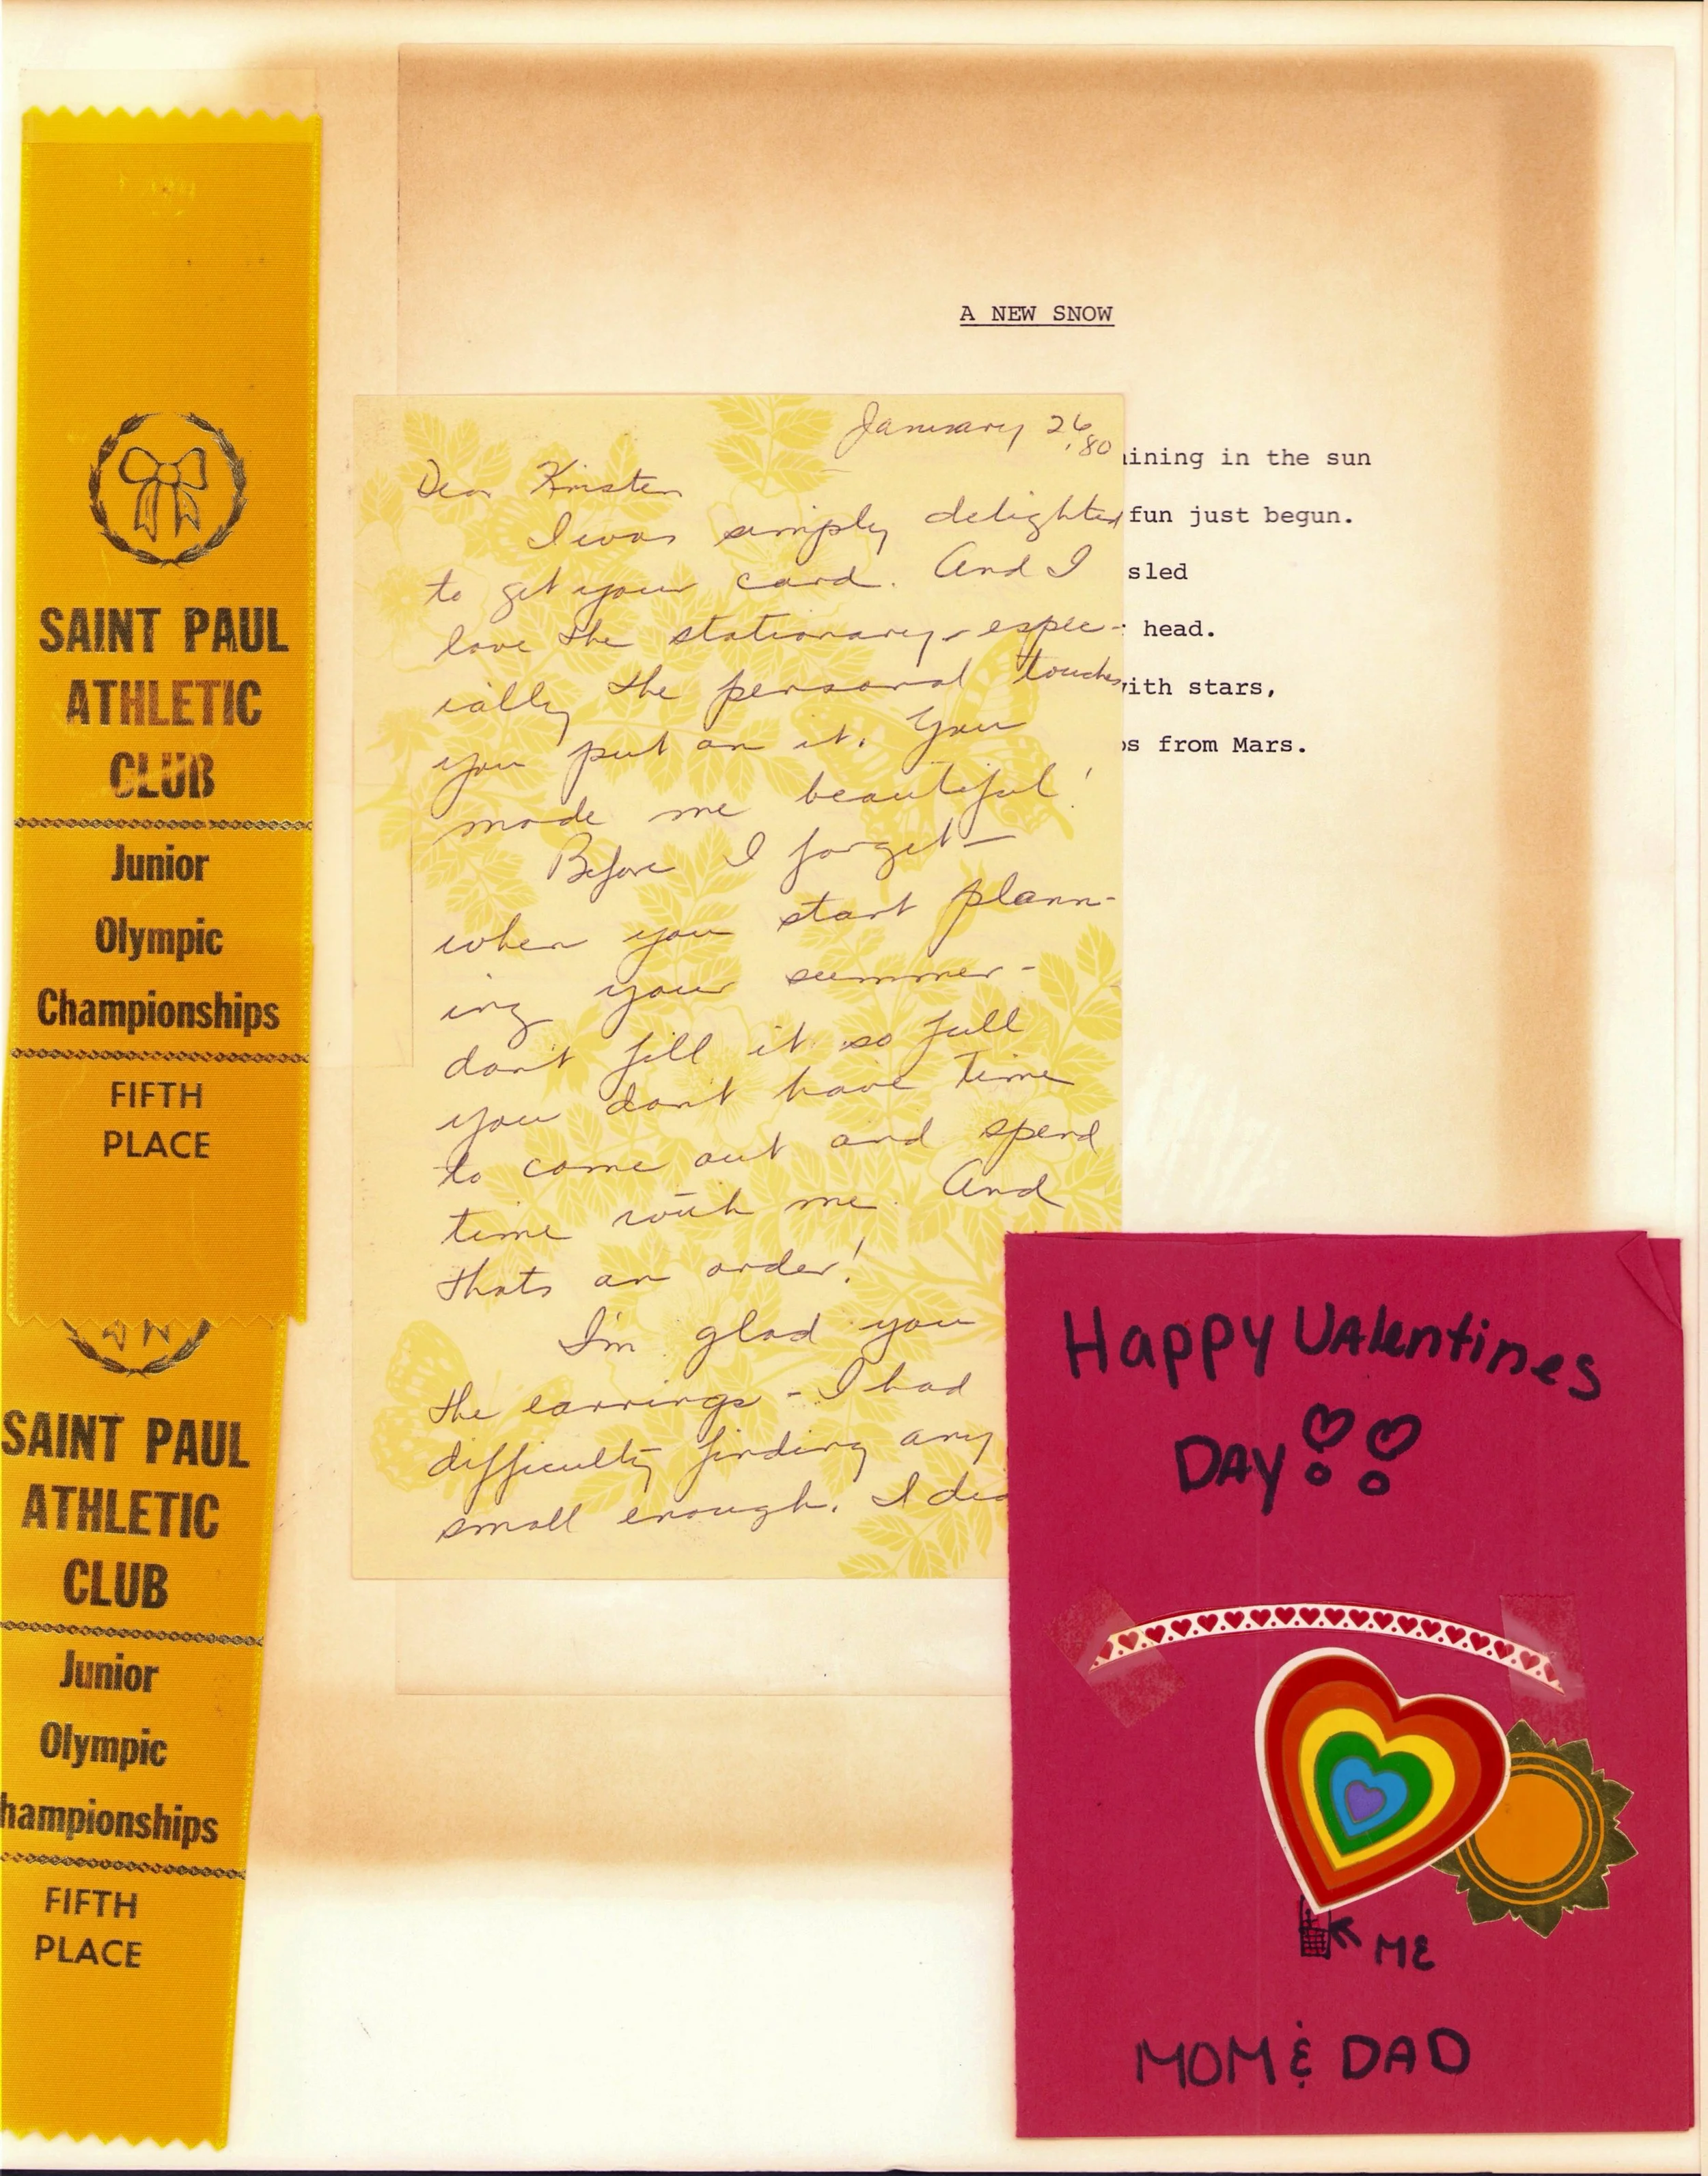 SAINT PAUL
ATHLETIC
CLUB
Junior
Olympic
Championships
FIFTH
PLACE
SAINT PAUL
ATHLETIC
CLUB
Junior
Olympic
hampionships
FIFTH
PLACE
A NEW SNOW
ining in the sun
fun just begun.
sled
head.
ith stars,
s from Mars.
January 26
'80
Dear Kristen
I was simply delighted
to get your card. And I
love the stationary - espec-
ially the personal touches
you put on it. You
made me beautiful!
Before I forget -
when you start plann-
ing your summer -
dont fill it so full
you dont have time
to come out and spend
time with me. And
thats an order!
I'm glad you
the earrings - I had
difficulty finding any
small enough. I
Happy VAlentines
DAY!!
ME
MOM & DAD